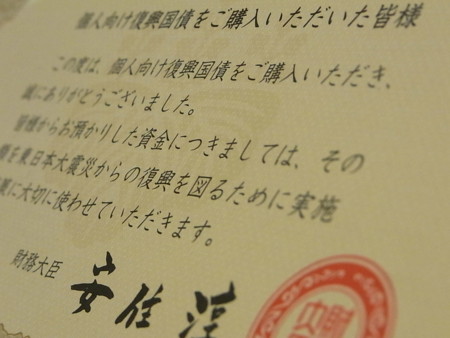 個人向け復興国債をご購入いただいた皆様
この度は、個人向け復興国債をご購入いただき、
誠にありがとうございました。
皆様からお預かりした資金につきましては、その
を東日本大震災からの復興を図るために実施
に大切に使わせていただきます。
財務大臣
安住 淳